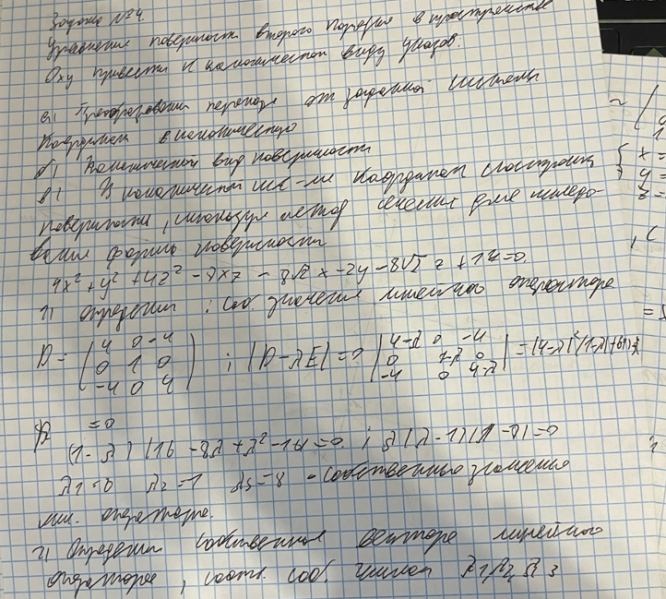 Задача №4.
Уравнение поверхности второго порядка в пространстве
Oxy привести к каноническому виду указав.
а) Преобразования перехода от заданной системы
Координат в каноническую
б) Канонический вид поверхности
в) В канонической сис-ме координат построить
поверхность, используя метод сечения для исследо-
вания формы поверхности
4x² + y² + 4z² - 8xz - 8√2 x - 2y - 8√2 z + 17 = 0.
1) определим: соб. значения линейного оператора
D = ( 4 0 -4 0 1 0 -4 0 4 ) ; |D - λE| = 0 | 4-λ 0 -4 0 1-λ 0 -4 0 4-λ | = (4-λ)²(1-λ)
= 0
(1-λ)(16 - 8λ + λ² - 16) = 0 ; λ(λ-1)(λ-8) = 0
λ1 = 0 λ2 = 1 λ3 = 8 - собственные значения
лин. оператора.
2) Определим собственные вектора линейного
оператора, соотв. соб. числам λ1 λ2 λ3
x =
y =
z =